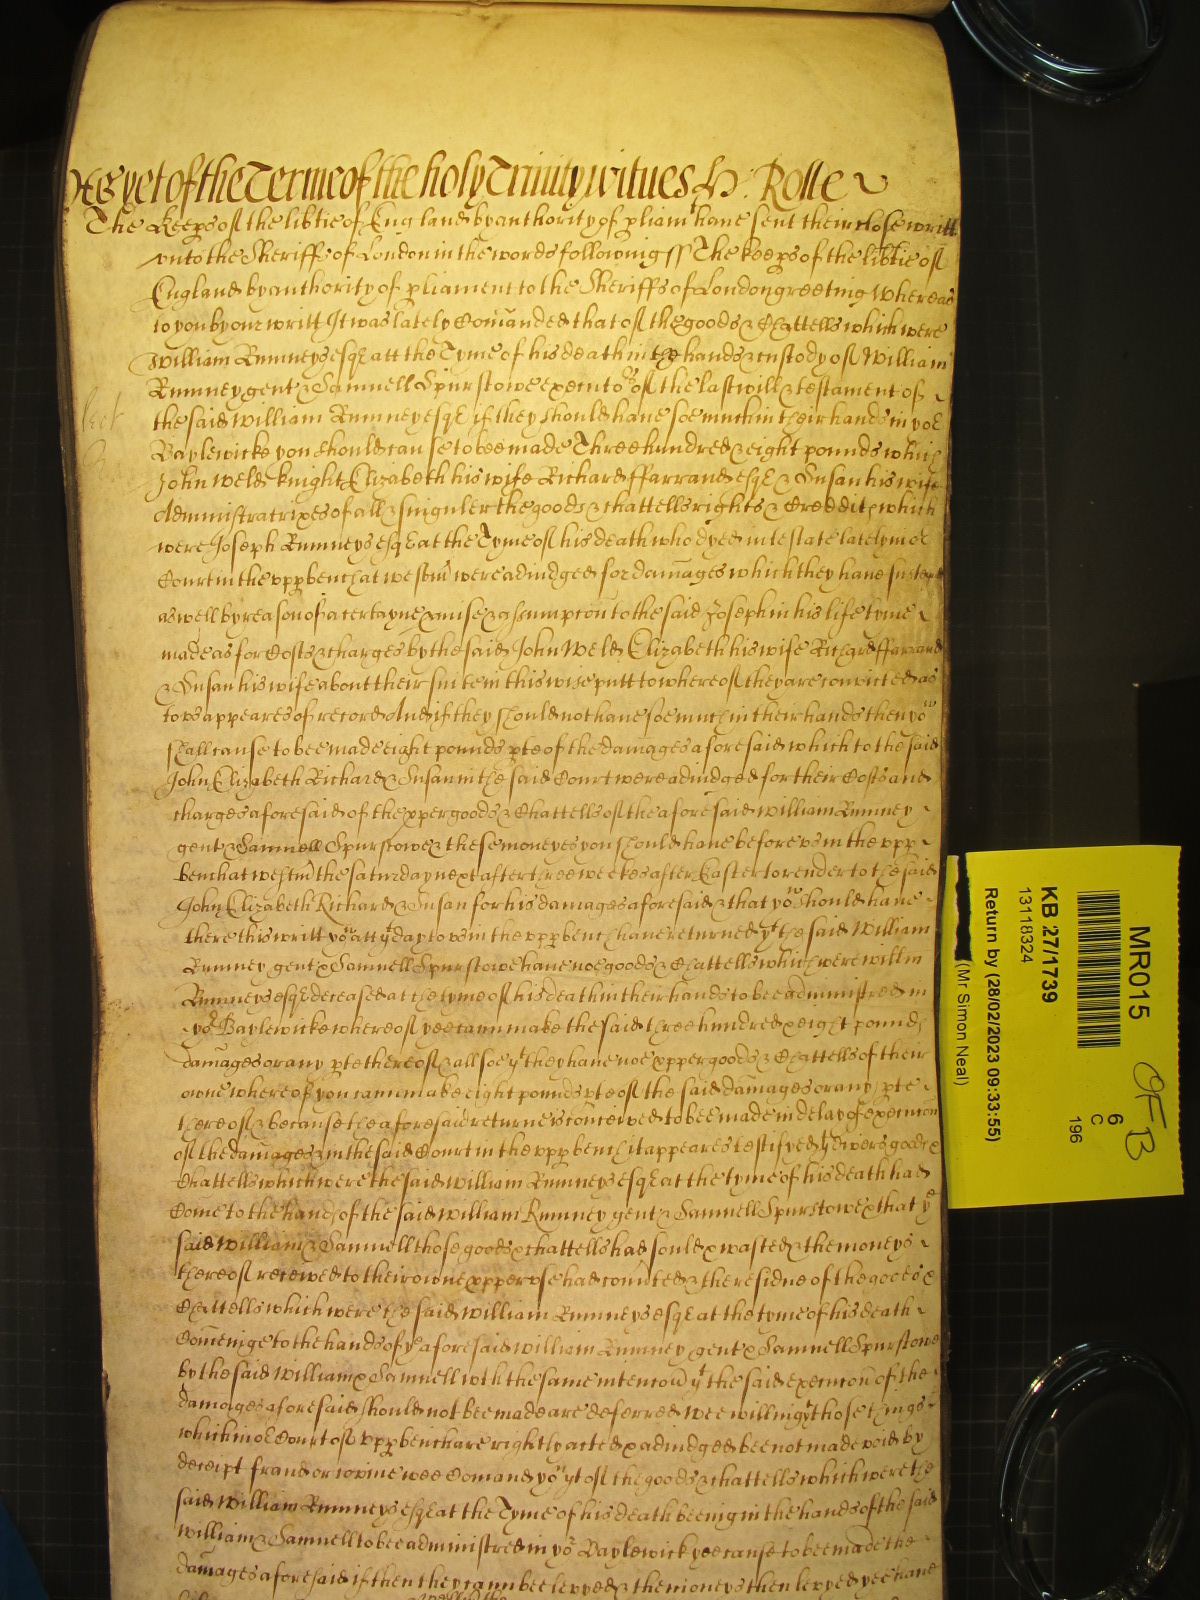 As yet of the Terme of the holy Trinity witnes H: Rolle
The Keeps of the libtie of England by authority of pliam^t have sent their close writt
unto the Sheriffs of London in the words following ss The keeps of the libtie of
England by authority of pliament to the Sheriffs of London greeting Whereas
to you by our writt It was lately Comanded that of the goods & Chattells which were
William Rumneys esq att the Tyme of his death in the hands & custody of William
Rumney gent & Samuell Spurstowe executo^rs of the last will & testament of
the said William Rumney esq if they should have soe much in their hands in yo^r
Baylewicke you should cause to bee made Three hundred & eight pounds which
John Weld knight Elizabeth his wife Richard ffarrand esq & Susan his wife
Administratrixes of all & singuler the goods & chattells rights & Creddits which
were Joseph Rumneys esq at the Tyme of his death who dyed intestate lately in o^r
Court in the upp bench at westm were adiudged for damages which they have susteyned
as well by reason of a certayne pmise & assumpcon to the said Joseph in his life tyme
made as for Costs & charges by the said John Weld Elizabeth his wife Richard ffarrand
& Susan his wife about their suite in this wise putt to whereof they are convicted as
to us appeares of record And if they should not have soe much in their hands then yo^u
shall cause to bee made eight pounds pte of the damages aforesaid which to the said
John Elizabeth Richard & Susan in the said Court were adiudged for their Costs and
charges aforesaid of the pper goods & Chattells of the aforesaid William Rumney
gent & Samuell Spurstowe & these moneyes you should have before us in the upp
bench at westm the saturday next after three weekes after Easter to render to the said
John Elizabeth Richard & Susan for his damages aforesaid & that yo^u should have
there this writt yo^u att y^t day to us in the upp bench have returned y^t the said William
Rumney gent & Samuell Spurstowe have noe goods & Chattells which were willm
Rumneys esq deceased at the tyme of his death in their hands to bee administred in
yo^r Baylewicke whereof yee cann make the said three hundred & eight pounds
damages or any pte thereof & allsoe y^t they have noe pper goods & Chattells of their
owne whereof you cann make eight pounds pte of the said damages or any pte
thereof & because the aforesaid returne is conceived to bee made in delay of execucon
of the damages & in the said Court in the upp bench it appeares testifyed y^t divers goods &
Chattells which were the said William Rumneys esq at the tyme of his death had
Come to the hands of the said William Rumney gent & Samuell Spurstowe & that y^e
said William & Samuell those goods & chattells had sould & wasted & the moneys
thereof received to their owne pper use had conv'ted & the residue of the goods &
Chattells which were the said William Rumneys esq at the tyme of his death
Comeinge to the hands of y^e aforesaid William Rumney gent & Samuell Spurstowe
by the said William & Samuell w^th the same intencon y^t the said execucon of the
damages aforesaid should not bee made are deferred wee willing y^t those things
which in o^r Court of upp bench are rightly acted & adiudged bee not made void by
deceipt fraud or covine wee Comand yo^u y^t of the goods & chattells which were the
said William Rumneys esq at the Tyme of his death beeing in the hands of the said
William & Samuell to bee administred in yo^r Baylewick yee cause to bee made the
damages aforesaid if then they cann bee levyed & the moneys then levyed yee have
MR015
6
C
196
OFB
KB 27/1739
13118324
Return by (28/02/2023 09:33:55)
(Mr Simon Neal)